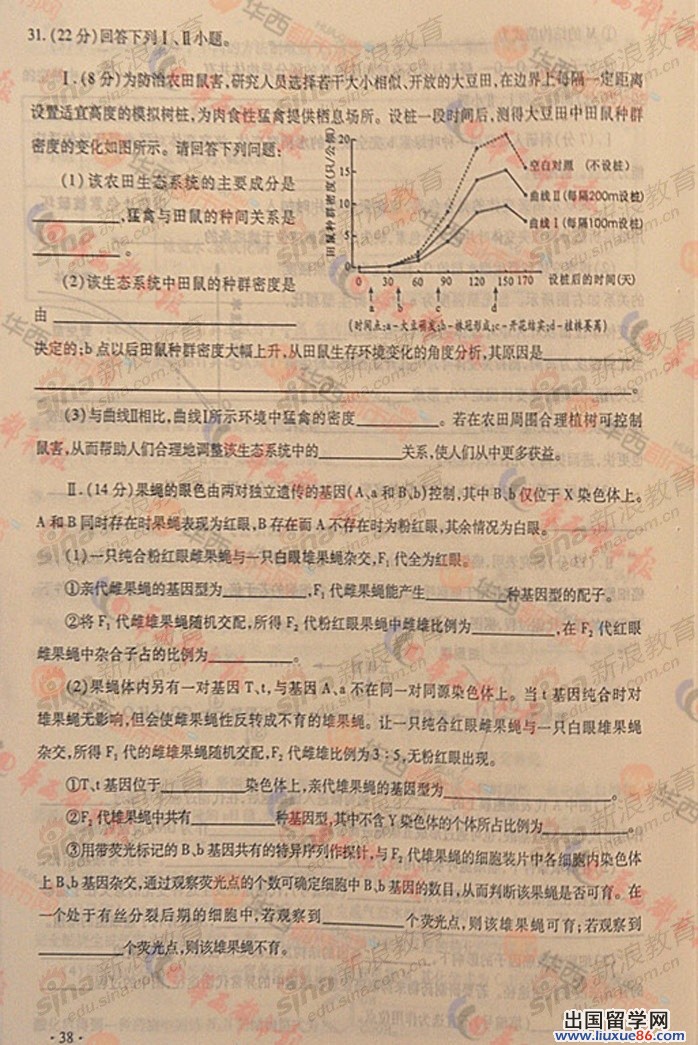 31.(22分)回答下列Ⅰ、Ⅱ小题。
Ⅰ.(8分)为防治农田鼠害,研究人员选择若干大小相似、开放的大豆田,在边界上每隔一定距离
设置适宜高度的模拟树桩,为肉食性猛禽提供栖息场所。设桩一段时间后,测得大豆田中田鼠种群
密度的变化如图所示。请回答下列问题:
(1)该农田生态系统的主要成分是
________,猛禽与田鼠的种间关系是
________。
(2)该生态系统中田鼠的种群密度是
由________
田鼠种群密度(只/公顷)
20
15
10
5
0
空白对照 (不设桩)
曲线Ⅱ(每隔200m设桩)
曲线Ⅰ(每隔100m设桩)
0 30 60 90 120 150 170 设桩后的时间(天)
a b c d
(时间点:a-大豆萌发;b-株冠形成;c-开花结实;d-植株萎蔫)
决定的;b点以后田鼠种群密度大幅上升,从田鼠生存环境变化的角度分析,其原因是________
________。
(3)与曲线Ⅱ相比,曲线Ⅰ所示环境中猛禽的密度________。若在农田周围合理植树可控制
鼠害,从而帮助人们合理地调整该生态系统中的________关系,使人们从中更多获益。
Ⅱ.(14分)果蝇的眼色由两对独立遗传的基因(A、a和B、b)控制,其中B、b仅位于X染色体上。
A和B同时存在时果蝇表现为红眼,B存在而A不存在时为粉红眼,其余情况为白眼。
(1)一只纯合粉红眼雌果蝇与一只白眼雄果蝇杂交,F₁代全为红眼。
①亲代雌果蝇的基因型为________,F₁代雌果蝇能产生________种基因型的配子。
②将F₁代雌雄果蝇随机交配,所得F₂代粉红眼果蝇中雌雄比例为________,在F₂代红眼
雌果蝇中杂合子占的比例为________。
(2)果蝇体内另有一对基因T、t,与基因A、a不在同一对同源染色体上。当t基因纯合时对
雄果蝇无影响,但会使雌果蝇性反转成不育的雄果蝇。让一只纯合红眼雌果蝇与一只白眼雄果蝇
杂交,所得F₁代的雌雄果蝇随机交配,F₂代雌雄比例为3:5,无粉红眼出现。
①T、t基因位于________染色体上,亲代雄果蝇的基因型为________。
②F₂代雄果蝇中共有________种基因型,其中不含Y染色体的个体所占比例为________。
③用带荧光标记的B、b基因共有的特异序列作探针,与F₂代雄果蝇的细胞装片中各细胞内染色体
上B、b基因杂交,通过观察荧光点的个数可确定细胞中B、b基因的数目,从而判断该果蝇是否可育。在
一个处于有丝分裂后期的细胞中,若观察到________个荧光点,则该雄果蝇可育;若观察到
________个荧光点,则该雄果蝇不育。
·38·
出国留学网
www.liuxue86.com